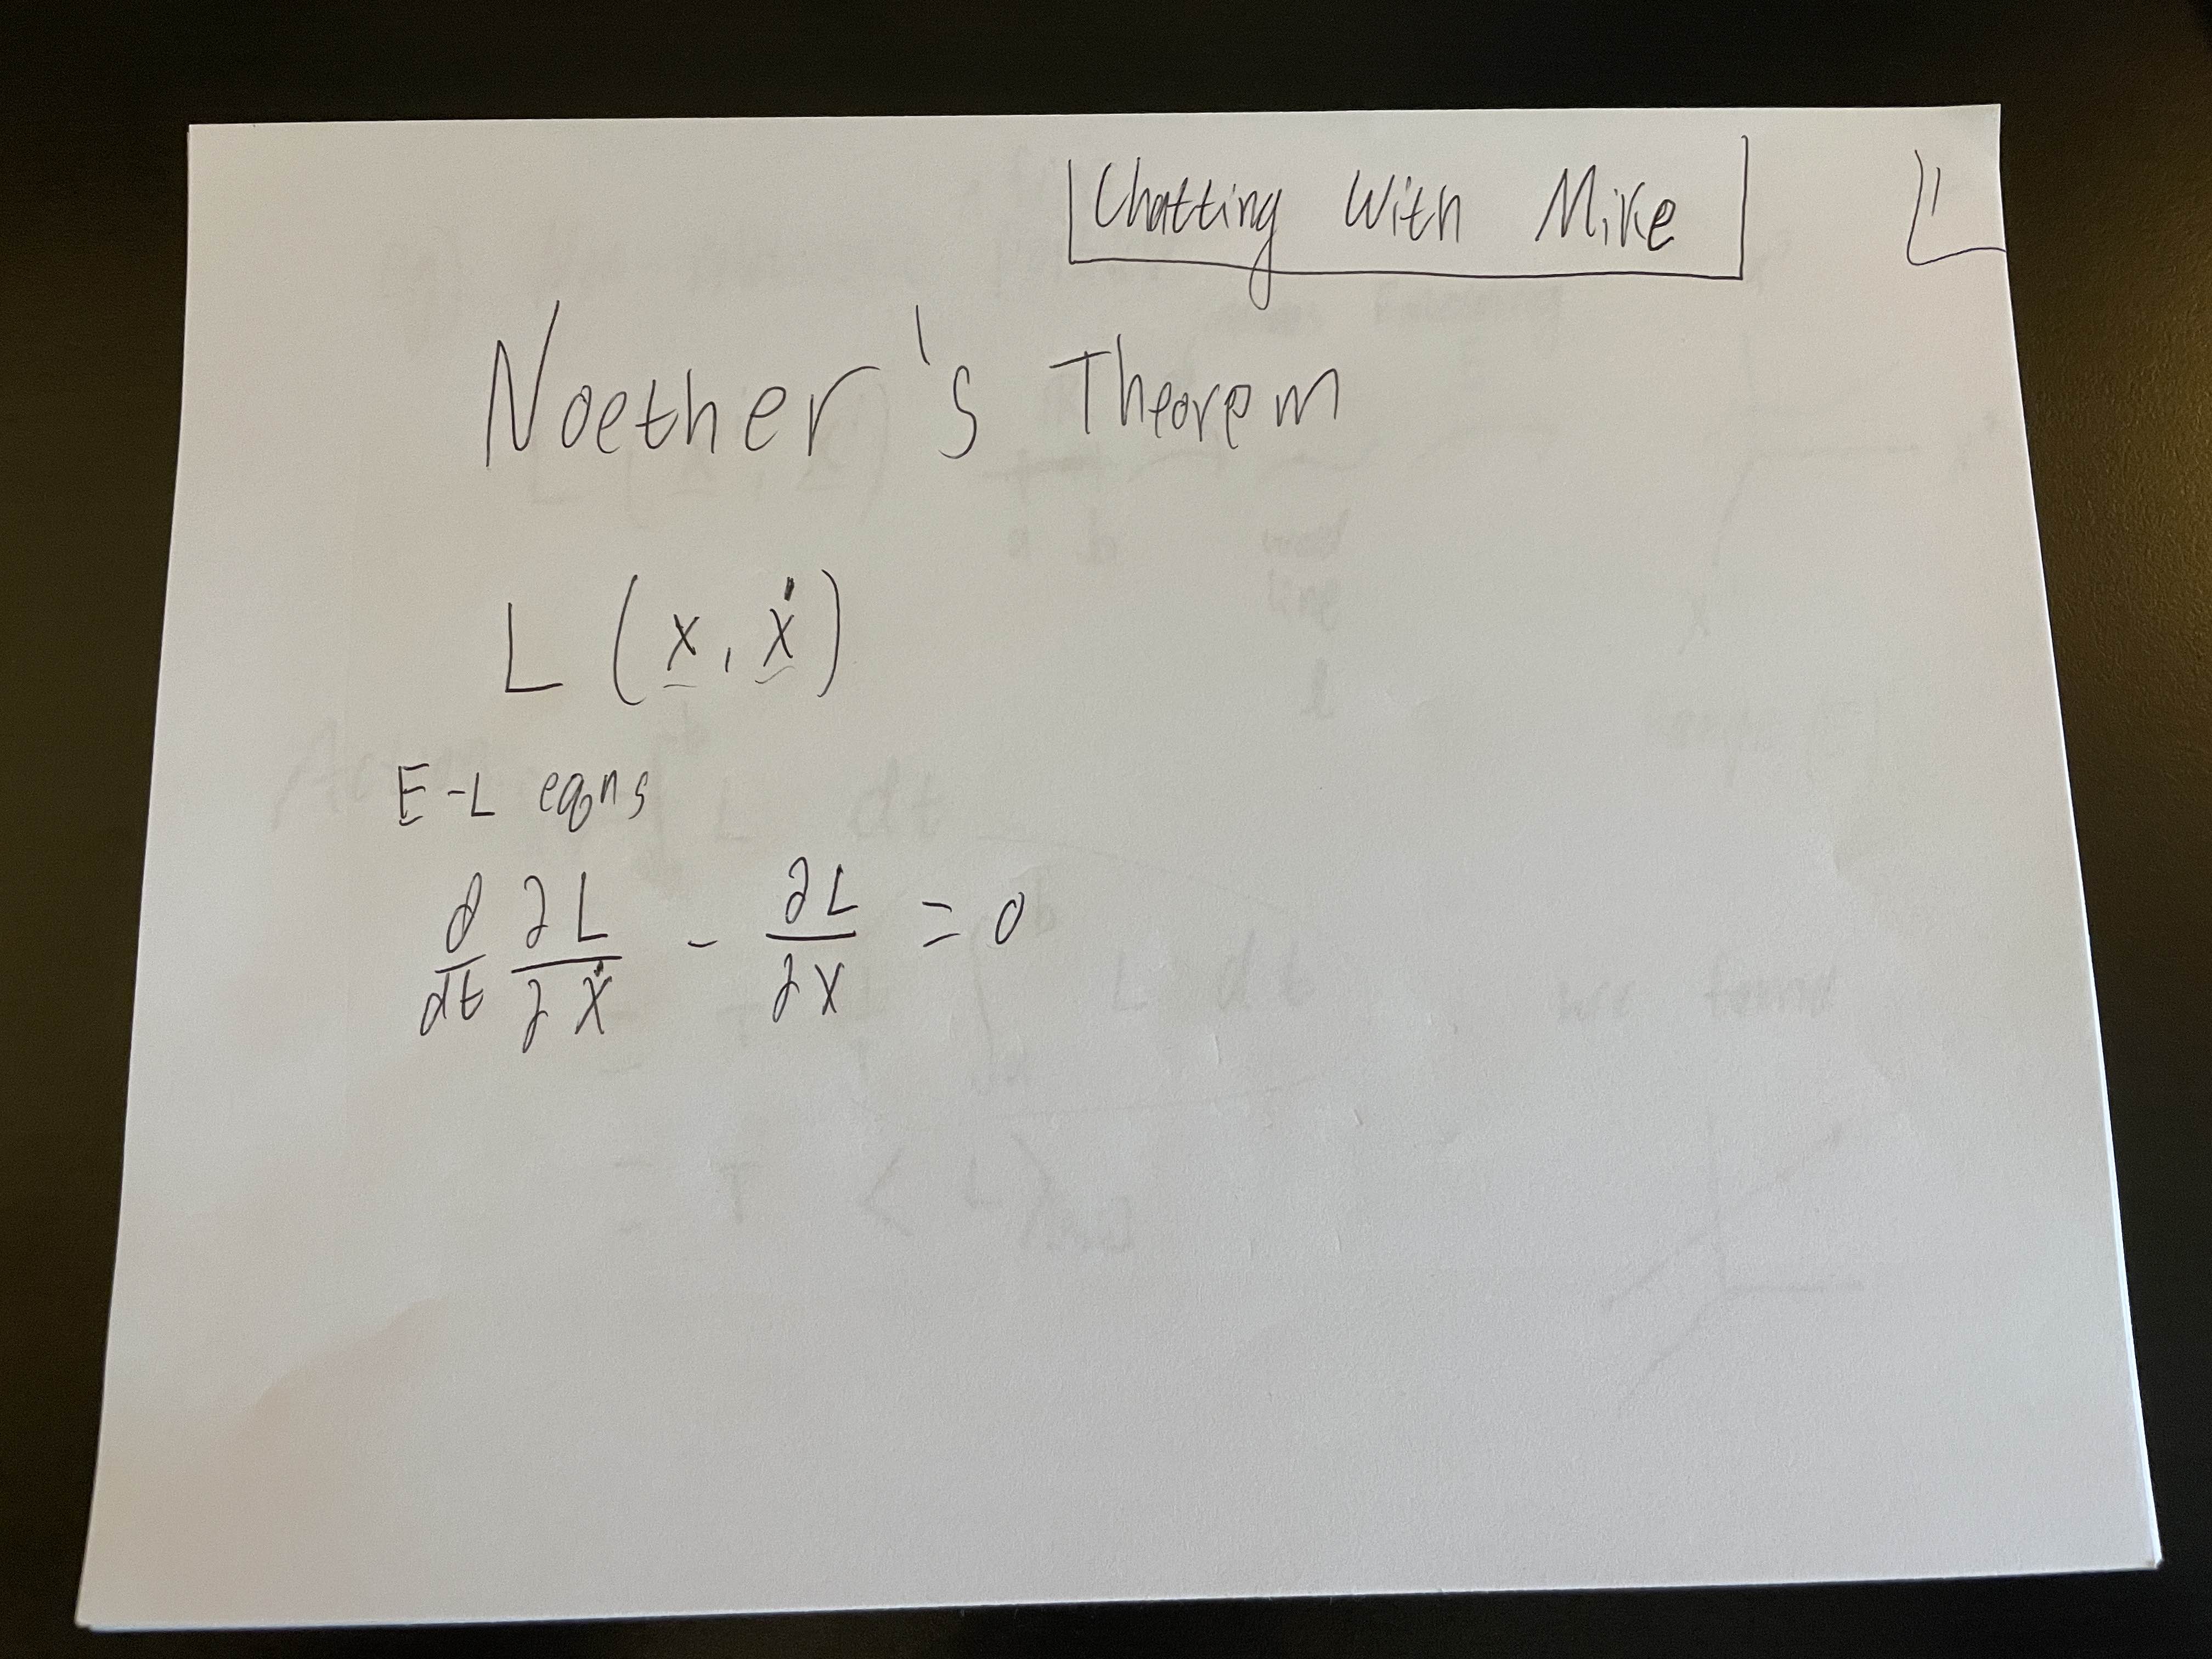 Chatting With Mike
Noether's Theorem
L (x, ẋ)
E-L eqns
d/dt ∂L/∂ẋ - ∂L/∂x = 0